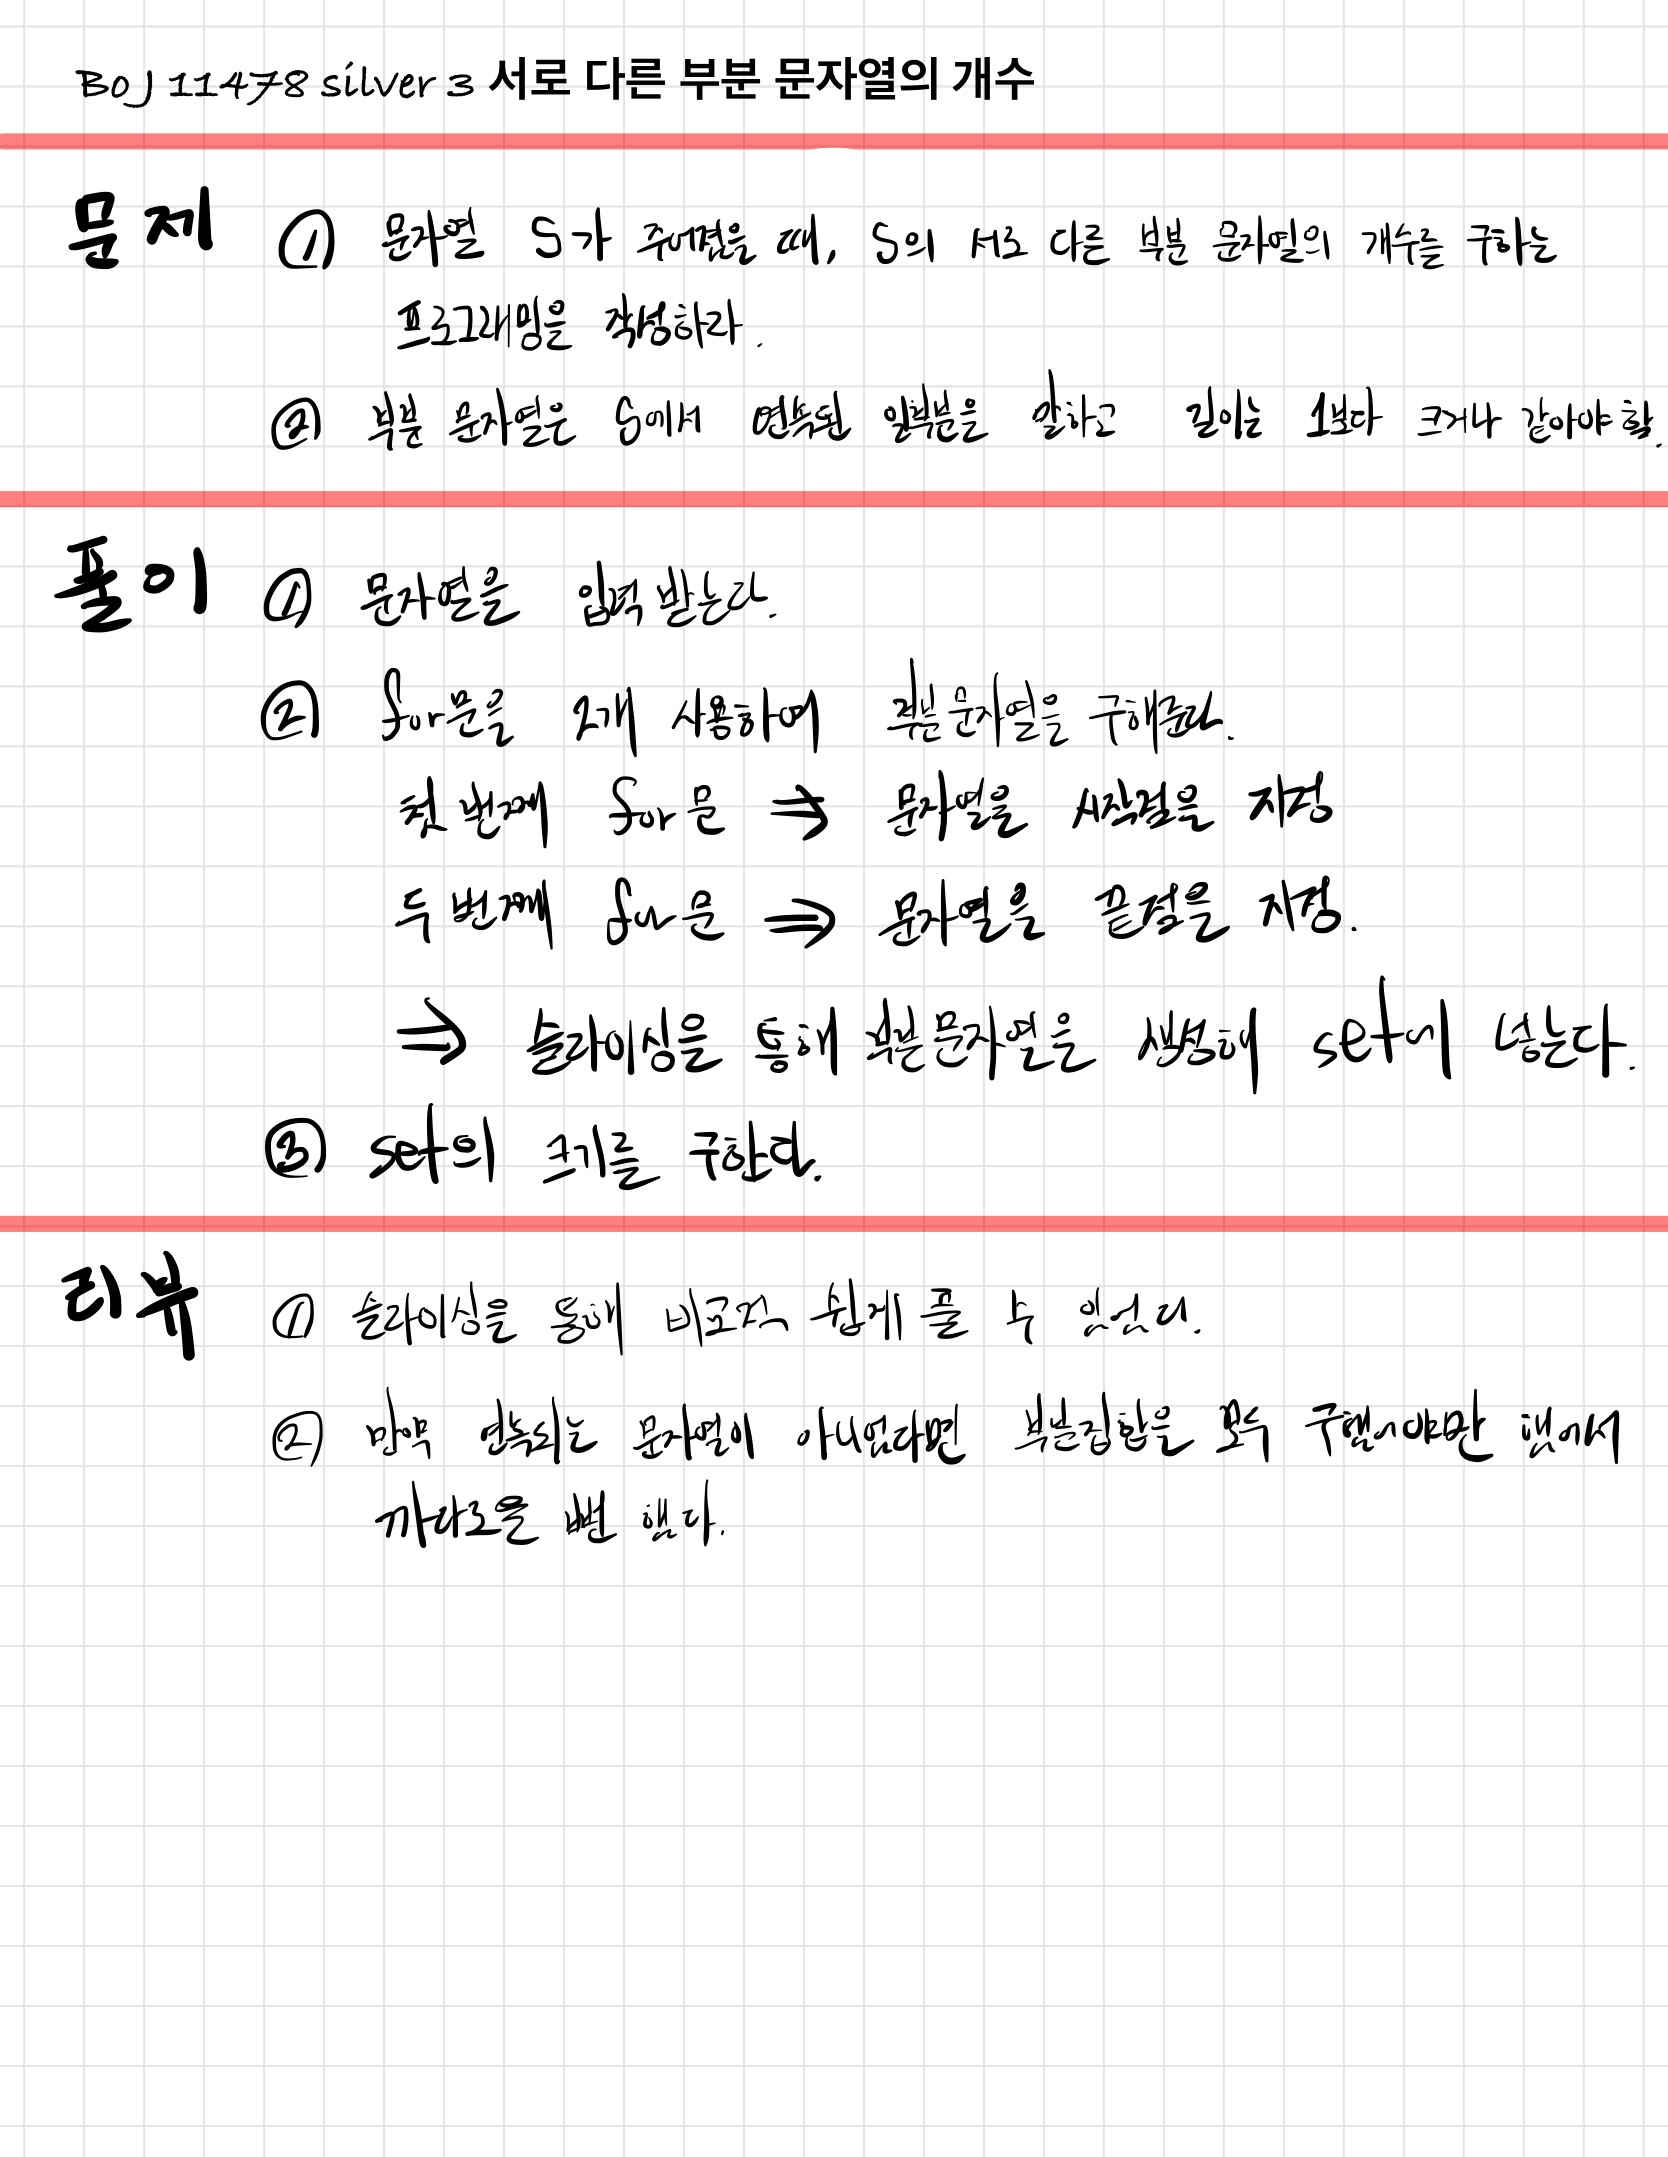 BOJ 11478 silver 3 서로 다른 부분 문자열의 개수
문제 ① 문자열 S가 주어졌을 때, S의 서로 다른 부분 문자열의 개수를 구하는
프로그래밍을 작성하라.
② 부분 문자열은 S에서 연속된 일부분을 말하고 길이는 1보다 크거나 같아야 함.
풀이 ① 문자열을 입력 받는다.
② for문을 2개 사용하여 부분문자열을 구해준다.
첫 번째 for문 ⇒ 문자열을 시작점을 지정
두 번째 for문 ⇒ 문자열을 끝점을 지정.
⇒ 슬라이싱을 통해 부분문자열을 생성해 set에 넣는다.
③ set의 크기를 구한다.
리뷰 ① 슬라이싱을 통해 비교적 쉽게 풀 수 있었다.
② 만약 연속되는 문자열이 아니었다면 부분집합을 모두 구했어야만 했어서
까다로울 뻔 했다.